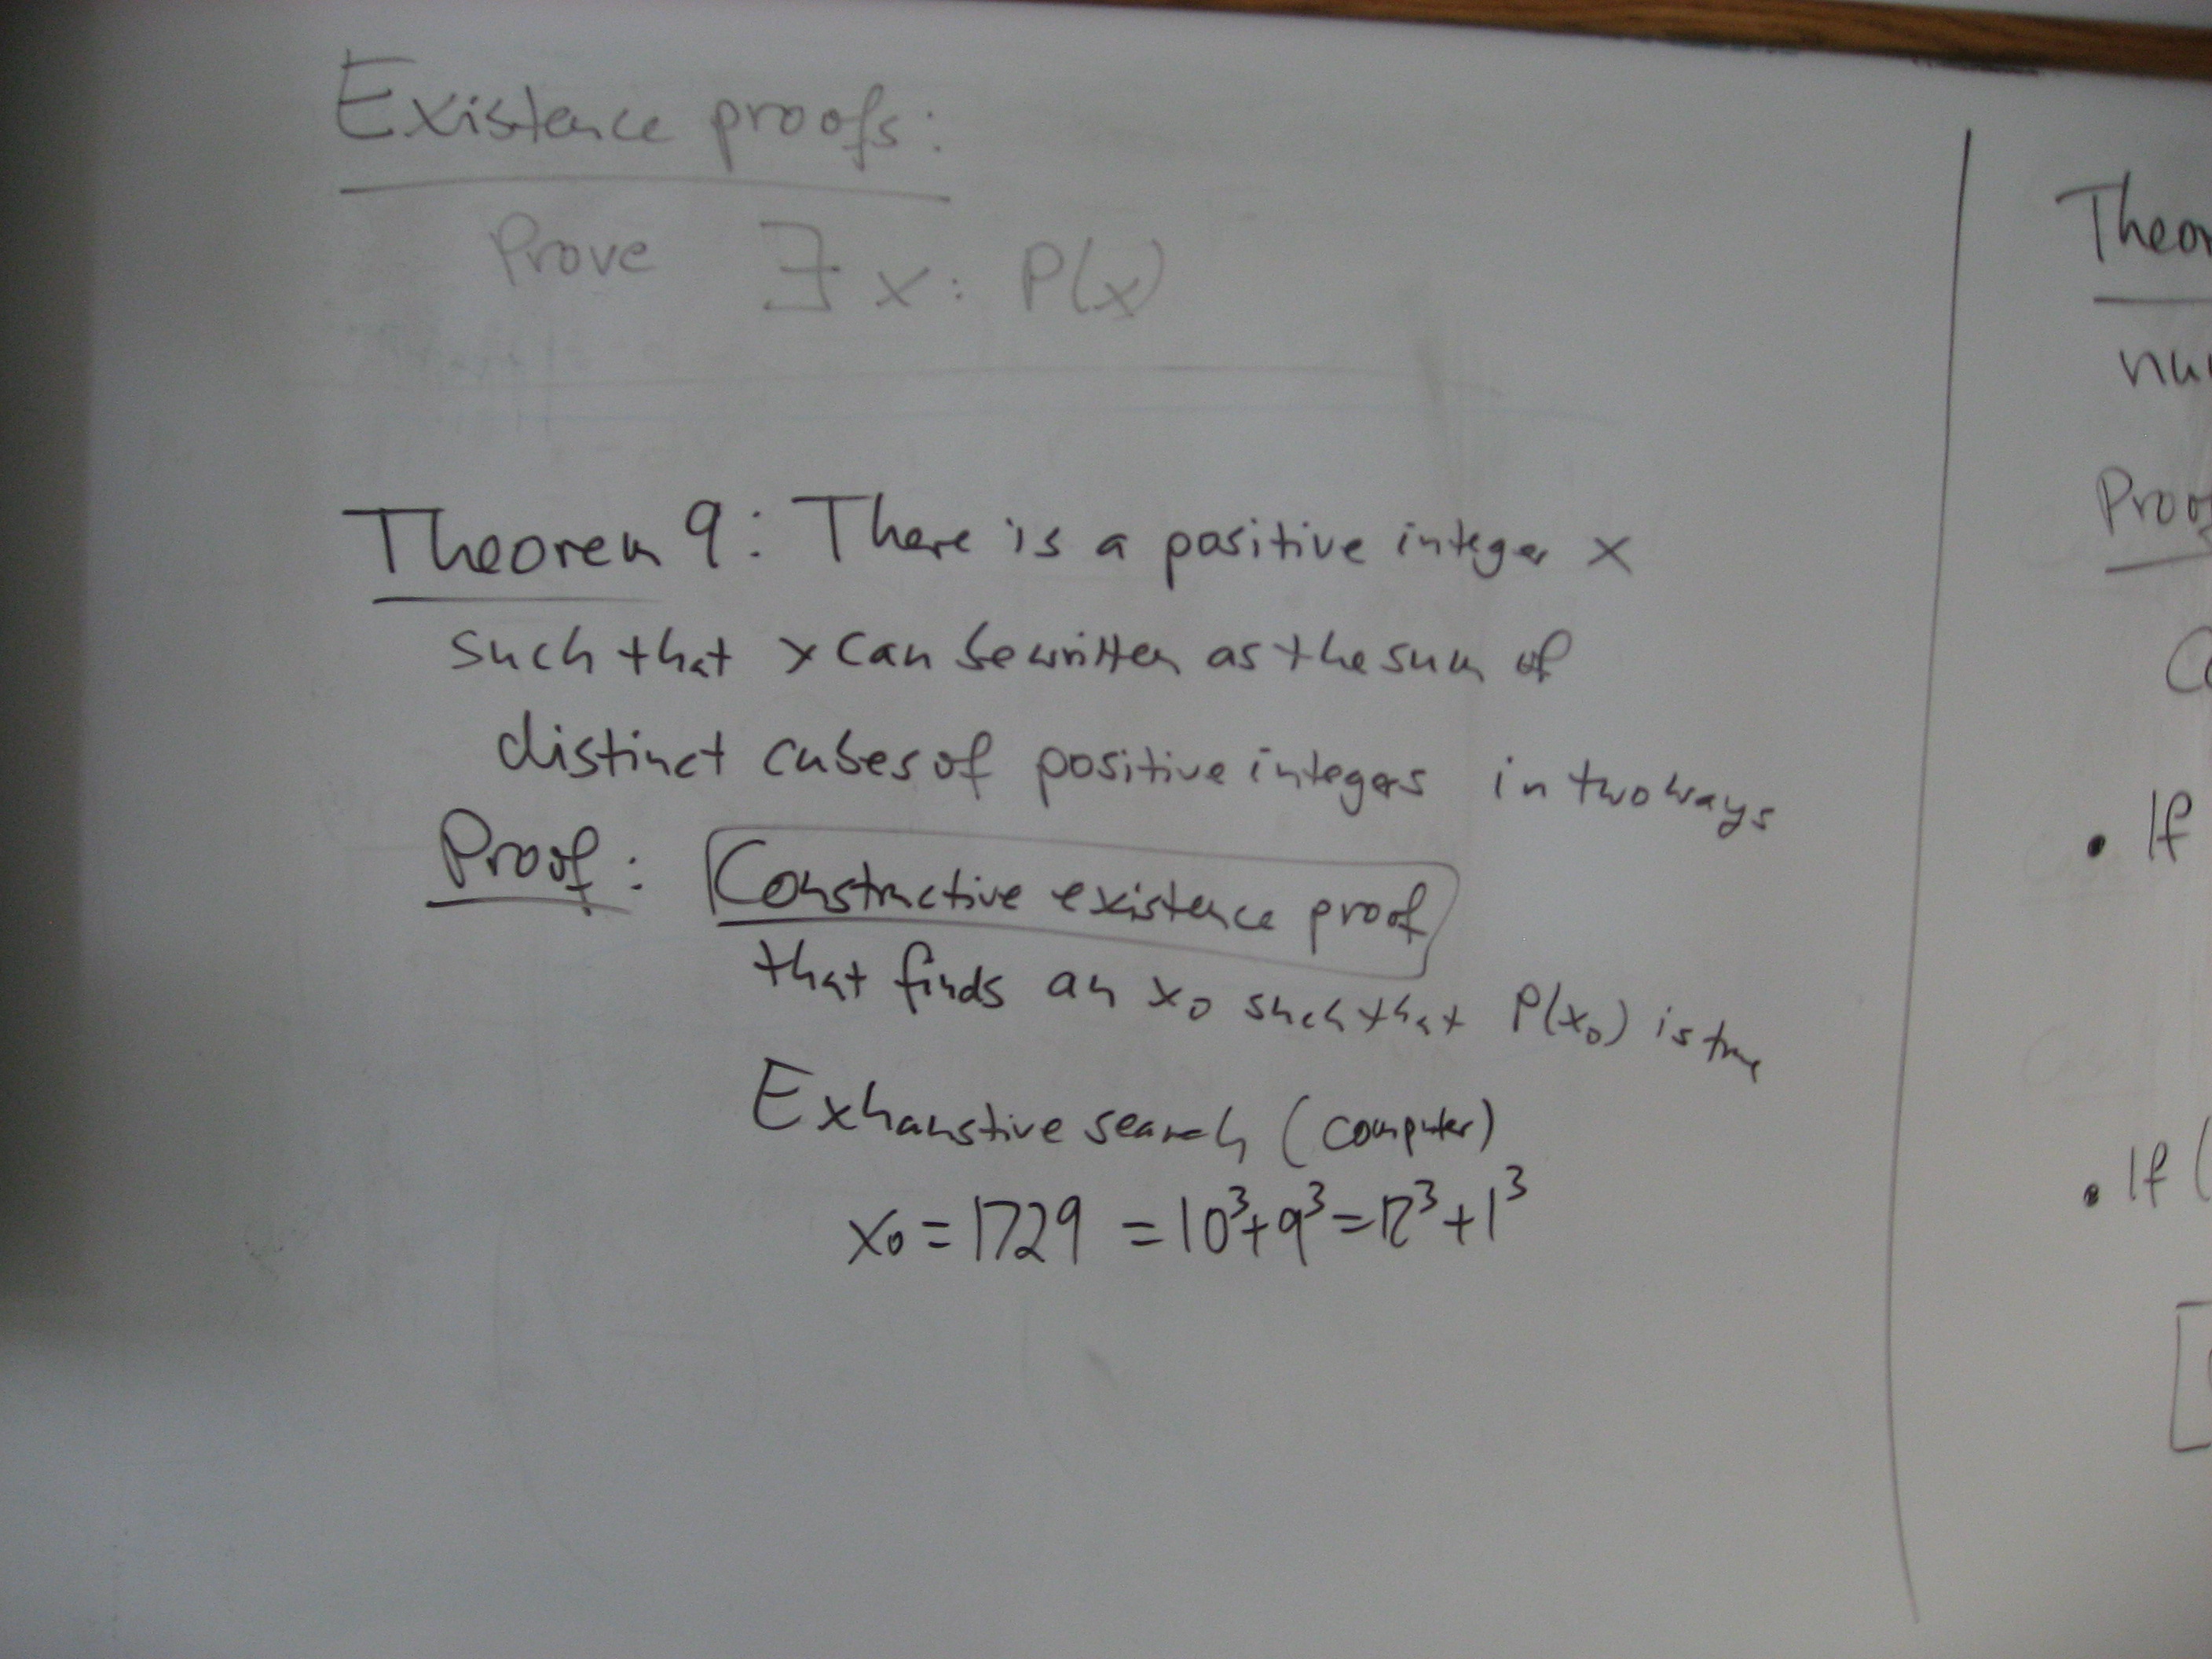 Existence proofs:
Prove ∃ x: P(x)
Theorem 9: There is a positive integer x
such that x can be written as the sum of
distinct cubes of positive integers in two ways
Proof: Constructive existence proof
that finds an x₀ such that P(x₀) is true
Exhaustive search (computer)
x₀ = 1729 = 10³+9³ = 12³+1³
Theor
nu
Proof
• If
• If (